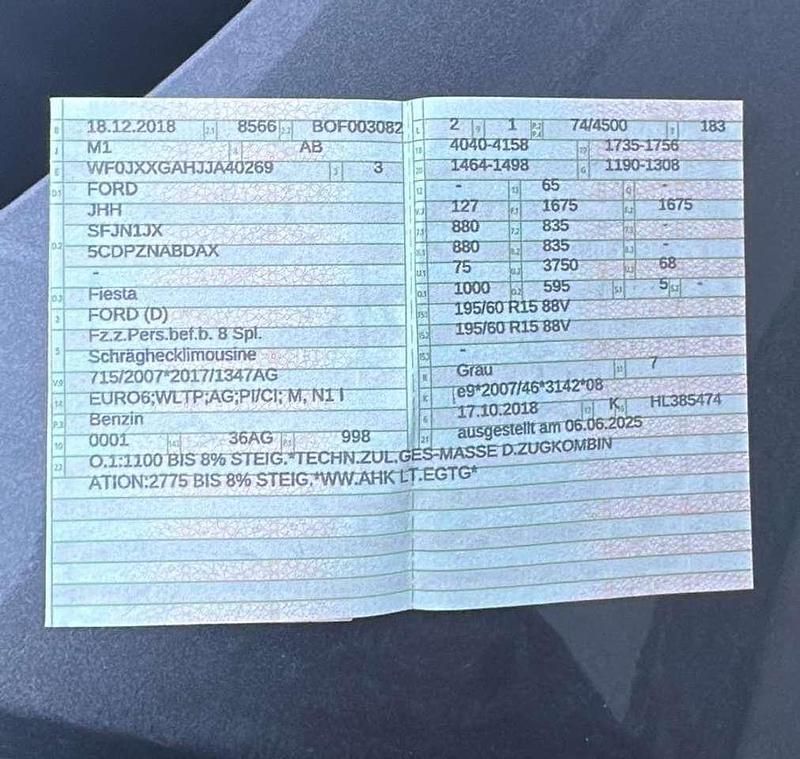 B 18.12.2018 2.1 8566 2.2 BOF003082
J M1 4 AB
E WF0JXXGAHJJA40269 3 3
D.1 FORD
JHH
D.2 SFJN1JX
5CDPZNABDAX
-
D.3 Fiesta
2 FORD (D)
5 Fz.z.Pers.bef.b. 8 Spl.
Schräghecklimousine
V.9 715/2007*2017/1347AG
14 EURO6;WLTP;AG;PI/CI; M, N1 I
P.3 Benzin
10 0001 14.1 36AG P.1 998
22 O.1:1100 BIS 8% STEIG.*TECHN.ZUL.GES-MASSE D.ZUGKOMBIN
ATION:2775 BIS 8% STEIG.*WW.AHK LT.EGTG*
L 2 9 1 P.2 P.4 74/4500 T 183
18 4040-4158 19 1735-1756
20 1464-1498 G 1190-1308
12 - 13 65 Q -
V.7 127 F.1 1675 F.2 1675
7.1 880 7.2 835 7.3 -
8.1 880 8.2 835 8.3 -
U.1 75 U.2 3750 U.3 68
O.1 1000 O.2 595 S.1 5 S.2 -
15.1 195/60 R15 88V
15.2 195/60 R15 88V
15.3 -
R Grau 11 7
K e9*2007/46*3142*08
6 17.10.2018 17 K 16 HL385474
21 ausgestellt am 06.06.2025